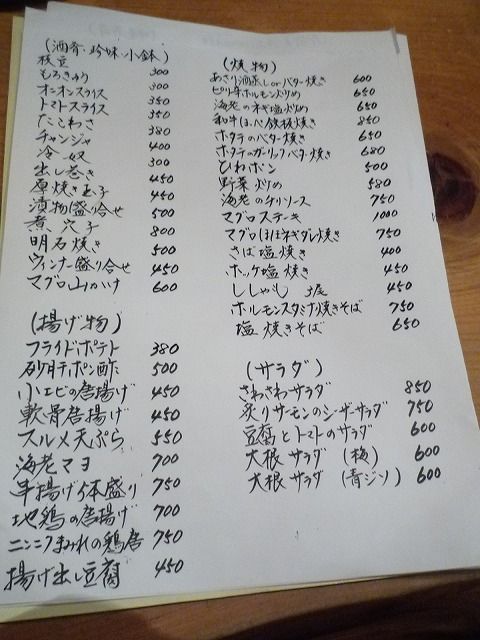 (酒肴・珍味・小鉢)
枝豆 300
もろきゅう 300
オニオンスライス 350
トマトスライス 350
たこわさ 380
チャンジャ 400
冷奴 300
出し巻き 450
厚焼き玉子 450
漬物盛り合せ 500
煮穴子 800
明石焼き 500
ウィンナー盛り合せ 450
マグロ山かけ 600
(揚げ物)
フライドポテト 380
砂肝ポン酢 500
小エビの唐揚げ 450
軟骨唐揚げ 450
スルメ天ぷら 550
海老マヨ 700
串揚げ5本盛り 750
地鶏の唐揚げ 700
ニンニクまみれの鶏唐 750
揚げ出し豆腐 450
(焼物)
あさり酒蒸しorバター焼き 600
ピリ辛ホルモン炒め 650
海老のネギ塩炒め 650
和牛ほほ鉄板焼き 850
ホタテのバター焼き 650
ホタテのガーリックバター焼き 680
ひねポン 500
野菜炒め 580
海老のチリソース 750
マグロステーキ 1000
マグロほほネギダレ焼き 750
さば塩焼き 400
ホッケ塩焼き 450
ししゃも 3尾 450
ホルモンスタミナ焼きそば 750
塩焼きそば 650
(サラダ)
さわさわサラダ 850
炙りサーモンのシーザーサラダ 750
豆腐とトマトのサラダ 600
大根サラダ (梅) 600
大根サラダ (青ジソ) 600